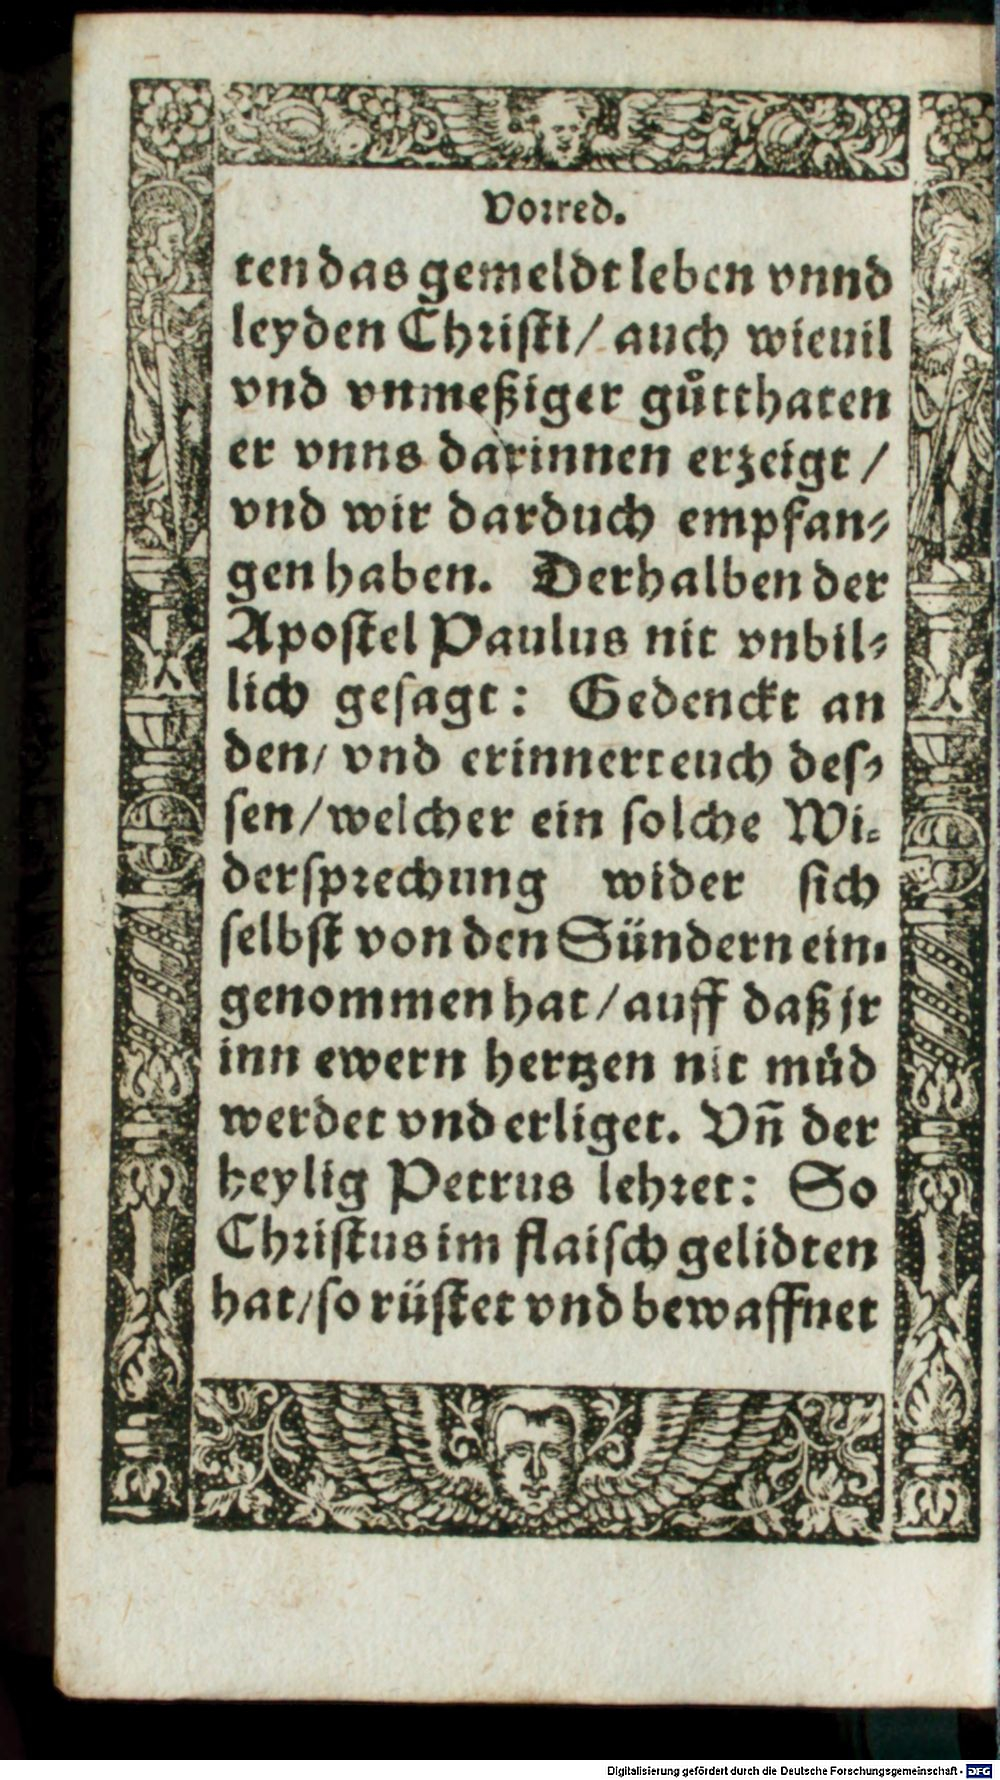 Vorred.
ten das gemeldt leben vnnd
leyden Christi/ auch wieuil
vnd vnmeßiger gůtthaten
er vnns darinnen erzeigt /
vnd wir darduch empfan⸗
gen haben. Derhalben der
Apostel Paulus nit vnbil⸗
lich gesagt: Gedenckt an
den/ vnd erinnert euch des⸗
sen/ welcher ein solche Wi⸗
dersprechung wider sich
selbst von den Sündern ein⸗
genommen hat / auff daß jr
inn ewern hertzen nit můd
werdet vnd erliget. Vñ der
heylig Petrus lehret: So
Christus im flaisch gelidten
hat/ so rüstet vnd bewaffnet
Digitalisierung gefördert durch die Deutsche Forschungsgemeinschaft - DFG